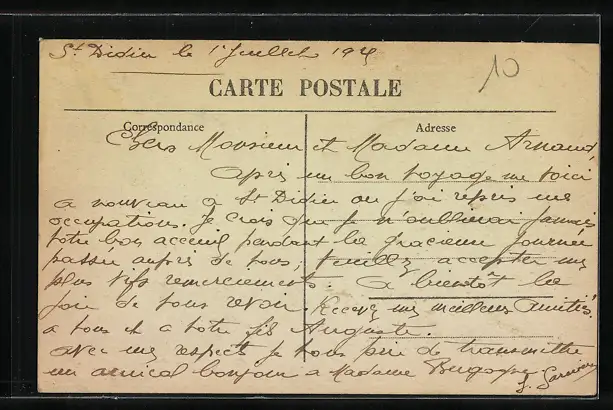 St Didier le 1 Juillet 191
10
CARTE POSTALE
Correspondance
Adresse
Chers Monsieur et Madame Arnaud,
après un bon voyage me voici
a nouveau a St Didier ou j'ai repris mes
occupations. Je crois que je n'oublierai jamais
votre bon acceuil pendant la gracieuse journée
passée auprès de vous, veuillez accepter mes
plus vifs remerciements. a bientôt la
joie de vous revoir. Recevez mes meilleurs amitiés
a vous et a votre fils Auguste.
avec mes respects je vous prie de transmettre
un amical bonjour a Madame